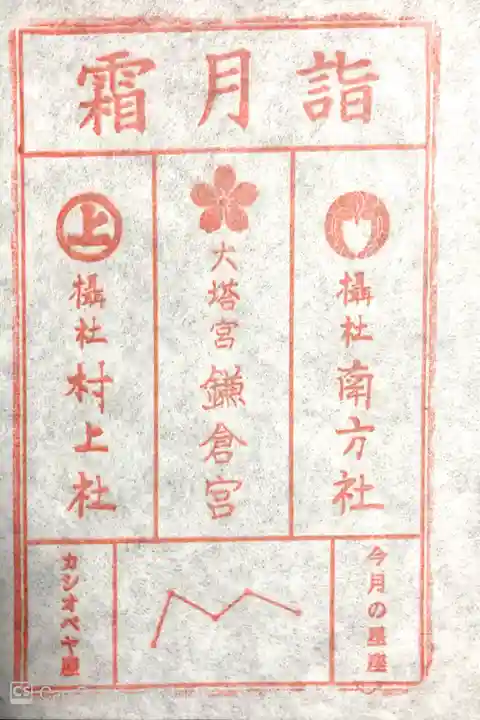 霜月詣
摂社 南方社
大塔宮 鎌倉宮
摂社 村上社
上
今月の星座
カシオペヤ座
CS